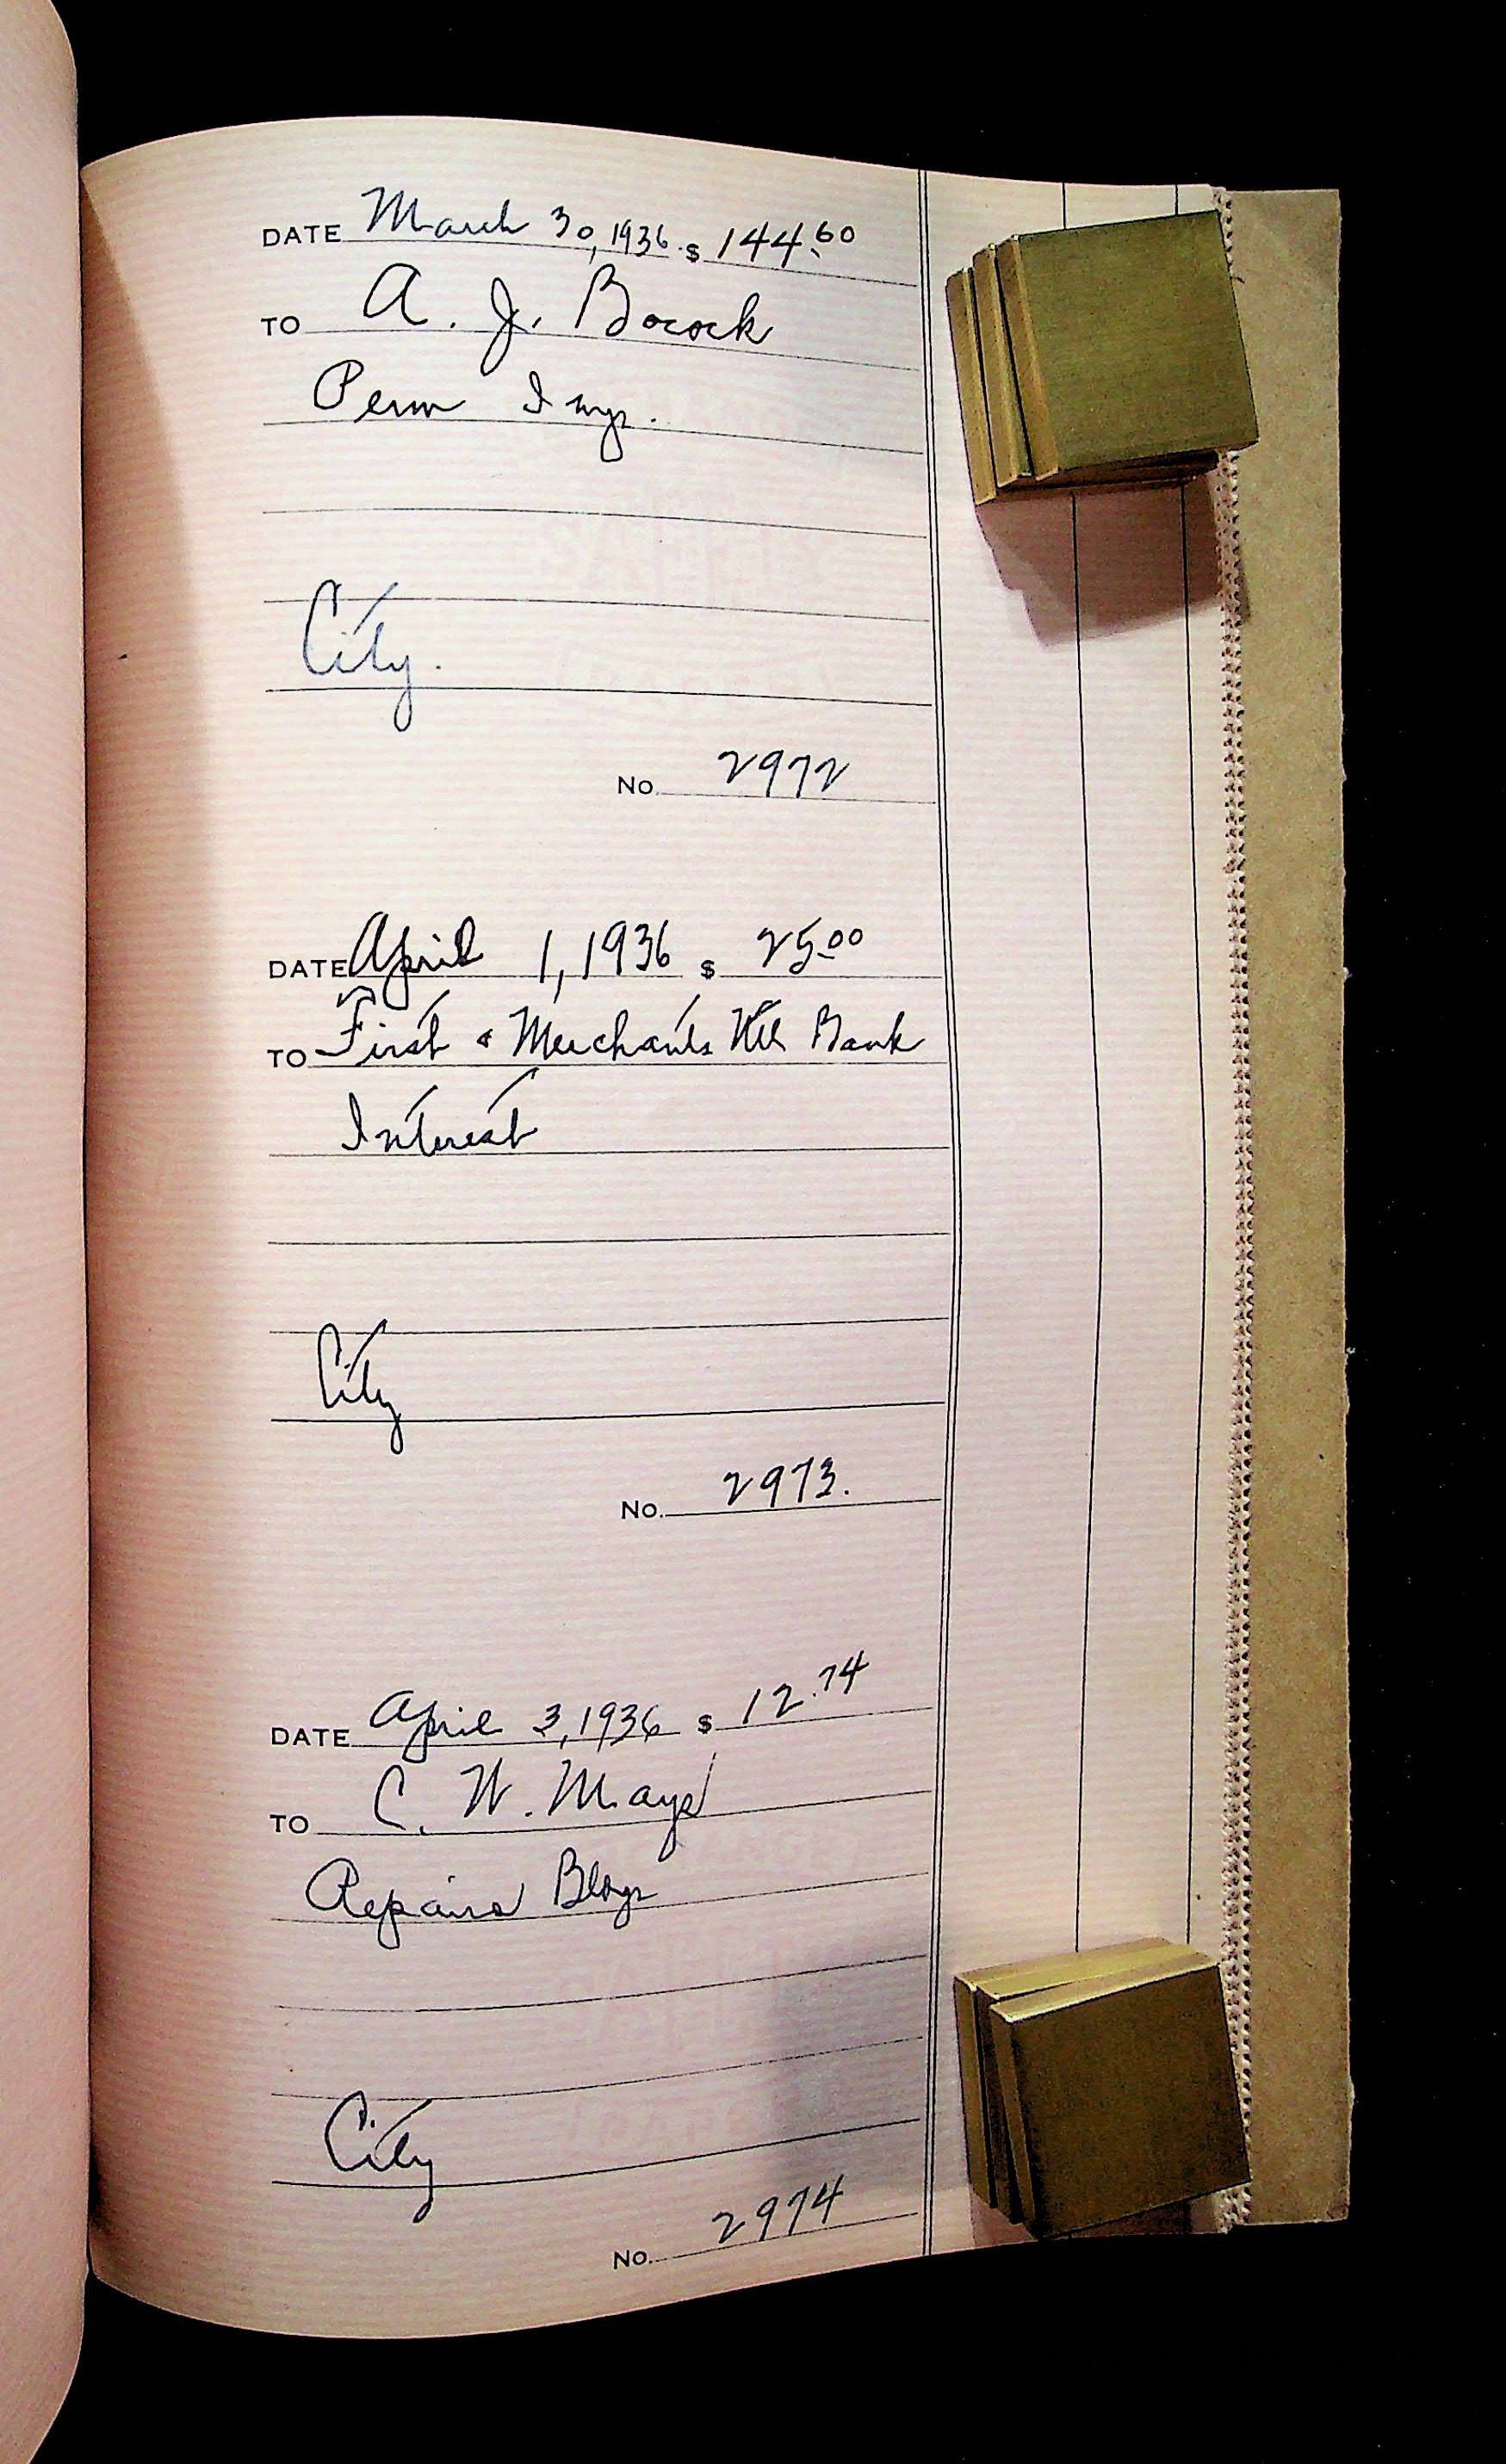 DATE March 30, 1936. $ 144.60
TO A. J. Bocock
Perm Imp.
City.
No. 2972
DATE April 1, 1936 $ 25.00
TO First & Merchants Ntl Bank
Interest
City
No. 2973.
DATE April 3, 1936 $ 12.74
TO C. W. Mays
Repairs Bldg
City
No. 2974